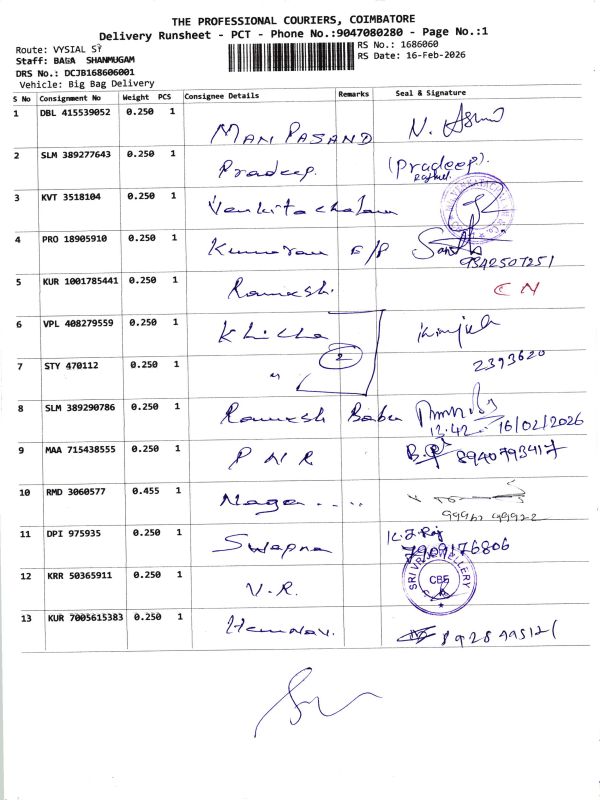 THE PROFESSIONAL COURIERS, COIMBATORE
Delivery Runsheet - PCT - Phone No.:9047080280 - Page No.:1
Route: VYSIAL ST
RS No.: 1686060
Staff: BAGA SHANMUGAM
RS Date: 16-Feb-2026
DRS No.: DCJB168606001
Vehicle: Big Bag Delivery
S No Consignment No Weight PCS Consignee Details Remarks Seal & Signature
1 DBL 415539052 0.250 1 MAN PASAND
2 SLM 389277643 0.250 1 Pradeep. (Pradeep).
3 KVT 3518104 0.250 1 Venkitachalam
4 PRO 18905910 0.250 1 Kumaran F/P 9342507251
5 KUR 1001785441 0.250 1 Ramesh. CN
6 VPL 408279559 0.250 1 Khicha
2
7 STY 470112 0.250 1 " 2393620
8 SLM 389290786 0.250 1 Ramesh Babu
13:42 16/02/2026
9 MAA 715438555 0.250 1 P N R 8940793417
10 RMD 3060577 0.455 1 Naga ....
11 DPI 975935 0.250 1 Swapna 7909176806
12 KRR 50365911 0.250 1 V.R. SRI VR JEWELLERY CBE
13 KUR 7005615383 0.250 1